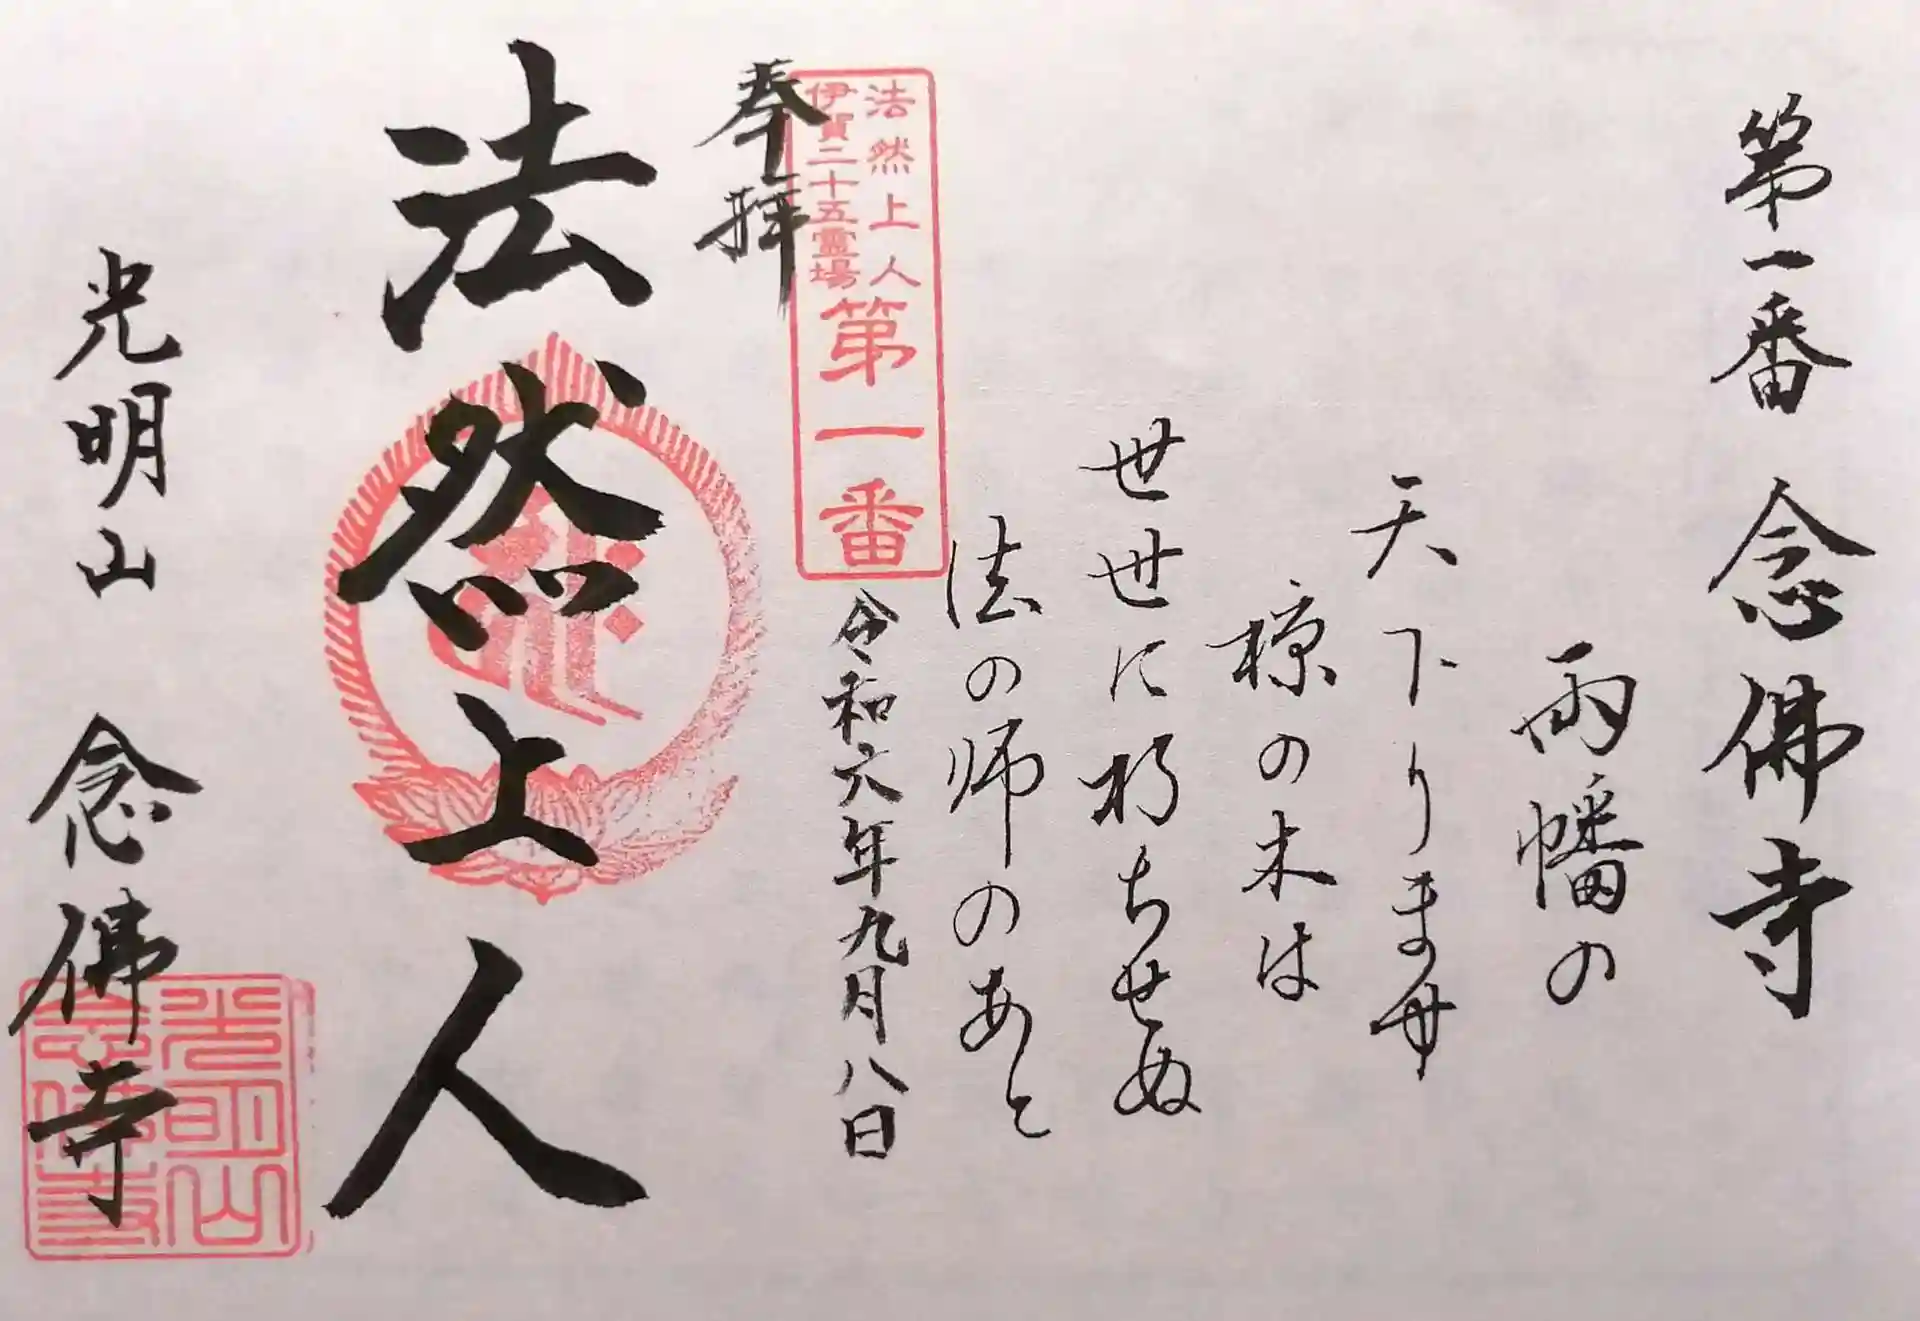 第一番 念佛寺
両幡の
天下りませ
椋の木は
世世に朽ちせぬ
法の師のあと
法然上人
伊賀二十五霊場
第一番
令和六年九月八日
奉拝
法然上人
光明山 念佛寺
光明山
念佛寺